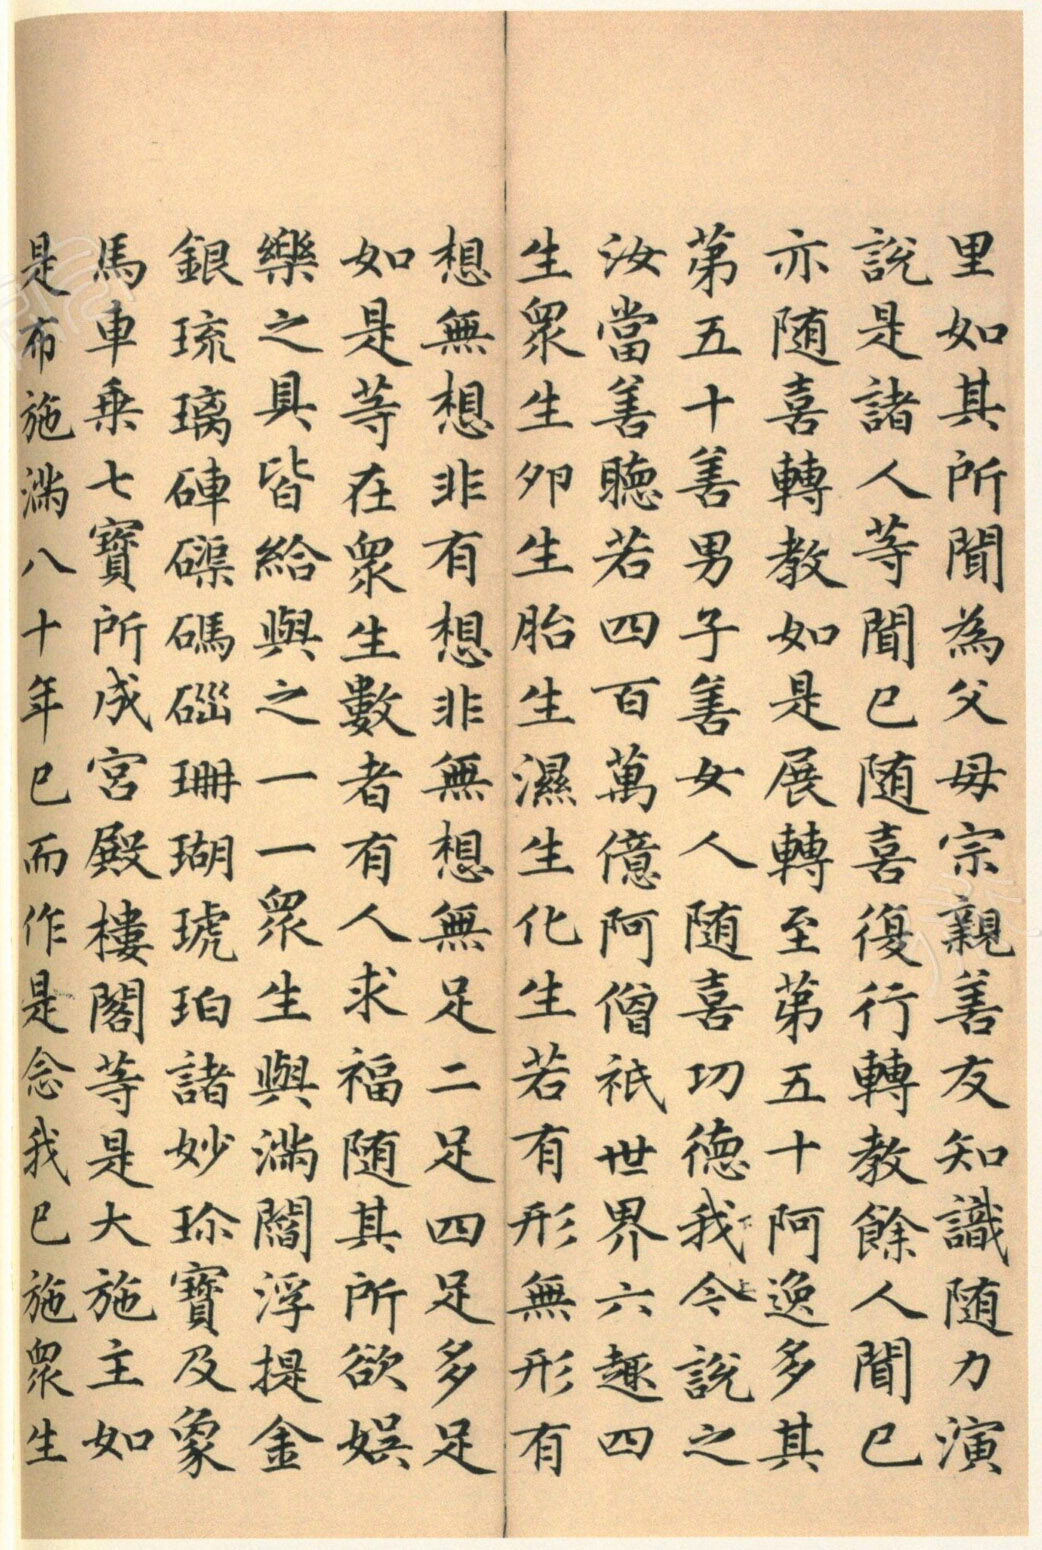 里如其所聞為父母宗親善友知識随力演
說是諸人等聞已随喜復行轉教餘人聞已
亦随喜轉教如是展轉至第五十阿逸多其
第五十善男子善女人随喜功德我今說之
汝當善聽若四百萬億阿僧祇世界六趣四
生衆生卵生胎生濕生化生若有形無形有
想無想非有想非無想無足二足四足多足
如是等在衆生數者有人求福随其所欲娛
樂之具皆給與之一一衆生與滿閻浮提金
銀琉璃硨磲碼碯珊瑚琥珀諸妙珍寶及象
馬車乗七寶所成宮殿樓閣等是大施主如
是布施滿八十年已而作是念我已施衆生